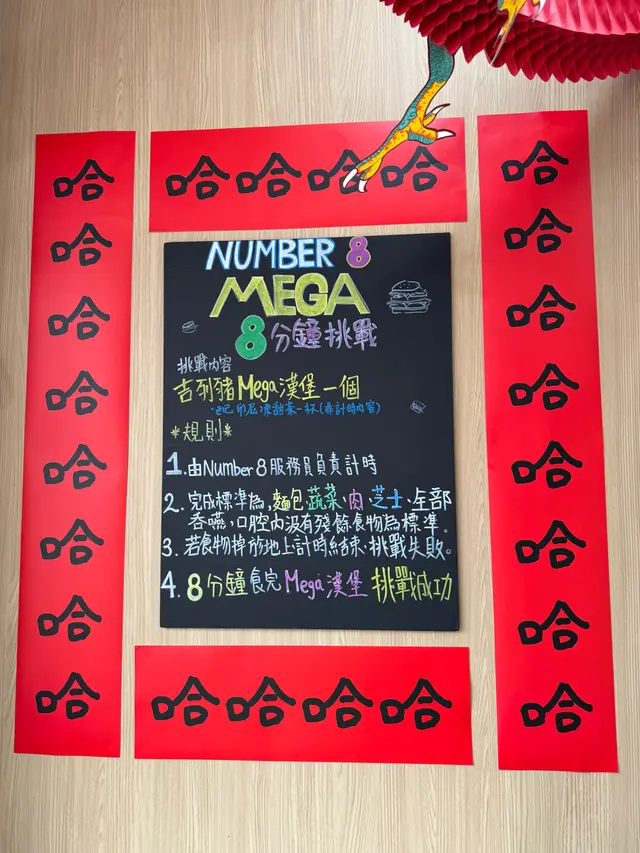 哈哈哈哈
哈哈哈哈哈哈哈哈
哈哈哈哈哈哈哈哈
NUMBER 8
MEGA
8分鐘挑戰
挑戰內容
吉列豬Mega漢堡一個
印尼凍甜茶一杯(非計時內容)
*規則*
1.由Number 8服務員負責計時
2.完成標準為,麵包、蔬菜、肉、芝士、全部
吞嚥,口腔內沒有殘餘食物為標準。
3.若食物掉於地上計時結束、挑戰失敗。
4.8分鐘食完Mega漢堡 挑戰成功
哈哈哈哈